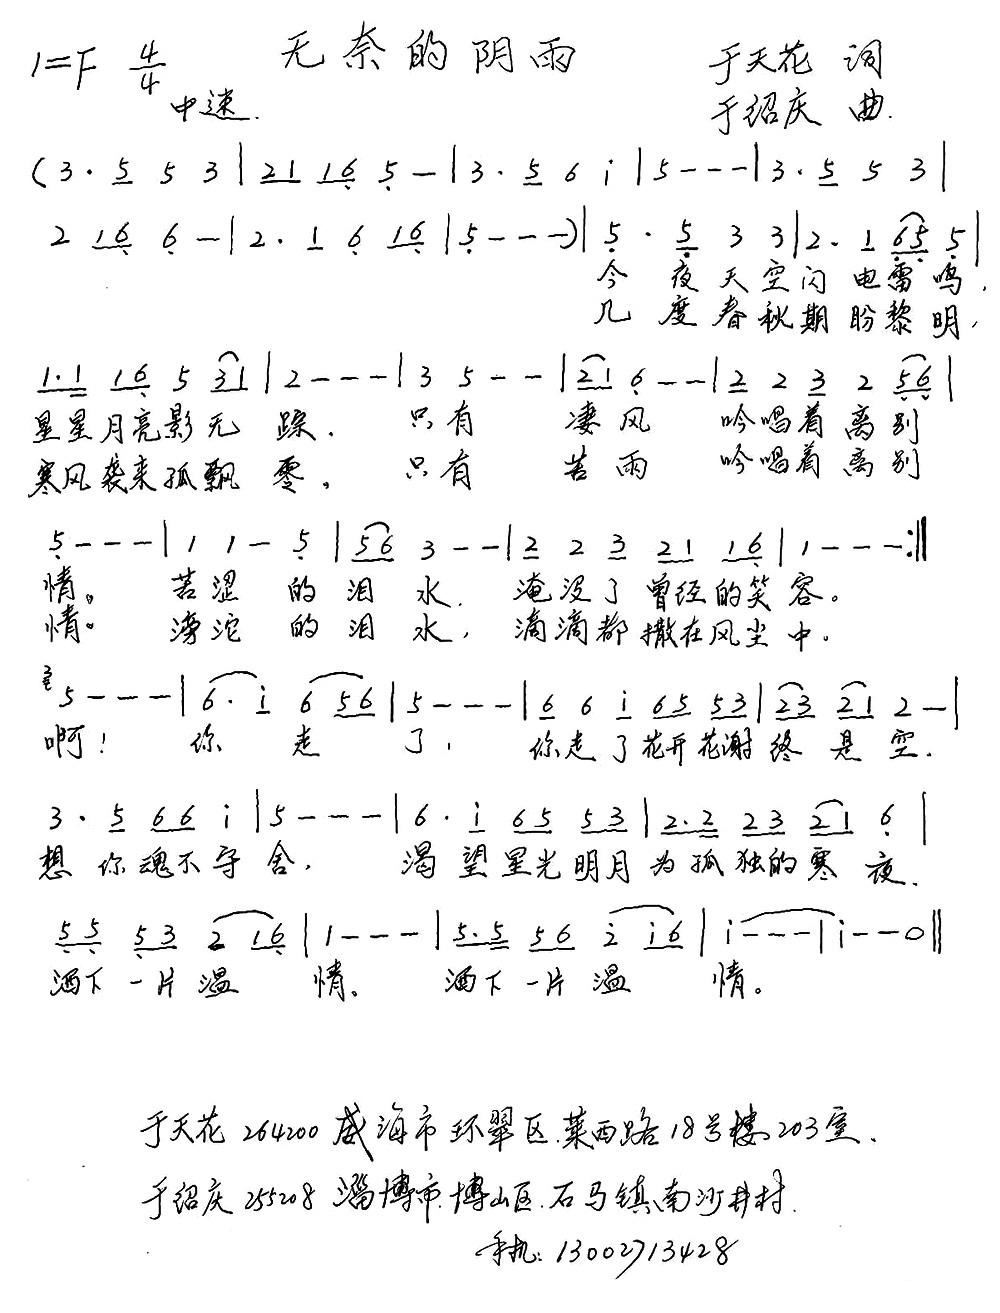 1=F 4/4 无奈的阴雨 于天花 词
中速. 于绍庆 曲.
(3· 5 5 3 | 21 16 5 — | 3· 5 6 i | 5 - - - | 3· 5 5 3 |
2 16 6 — | 2· 1 6 16 | 5 - - -) | 5· 5 3 3 | 2· 1 65 5 |
今夜天空闪电雷鸣,
几度春秋期盼黎明,
1·1 16 5 31 | 2 - - - | 3 5 - - | 21 6 - - | 2 2 3 2 56 |
星星月亮影无踪. 只有凄风吟唱着离别
寒风袭来孤飘零, 只有苦雨吟唱着离别
5 - - - | 1 1 - 5 | 56 3 - - | 2 2 3 21 16 | 1 - - - :||
情。苦涩的泪水. 淹没了曾经的笑容。
情。滂沱的泪水, 滴滴都撒在风尘中.
5 - - - | 6· i 6 56 | 5 - - - | 6 6 i 65 53 | 23 21 2 - |
啊! 你走了, 你走了花开花谢终是空.
3· 5 66 i | 5 - - - | 6· i 65 53 | 2·2 23 21 6 |
想你魂不守舍, 渴望星光明月为孤独的寒夜.
55 53 2 16 | 1 - - - | 5·5 56 2 i6 | i - - - | i - - 0 ||
洒下一片温情、洒下一片温情。
于天花 264200 威海市环翠区.莱西路18号楼203室.
于绍庆 255208 淄博市.博山区.石马镇南沙井村.
手机: 13002713428